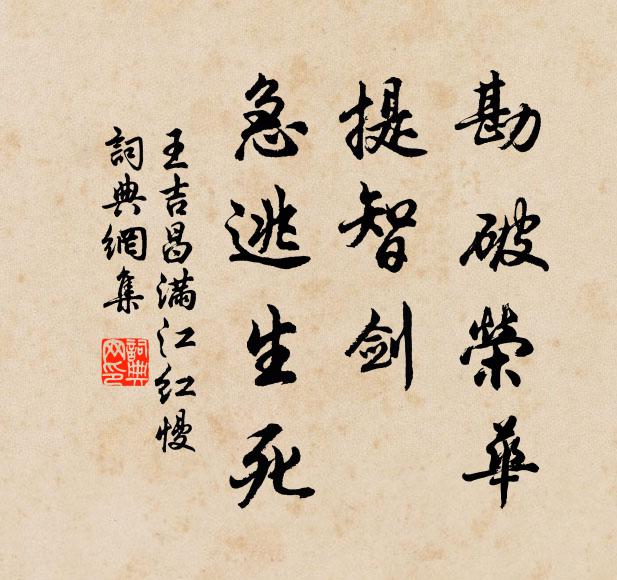 勘破榮華
提智劍
急逃生死
王吉昌满江红慢
詞典網集
詞典网印